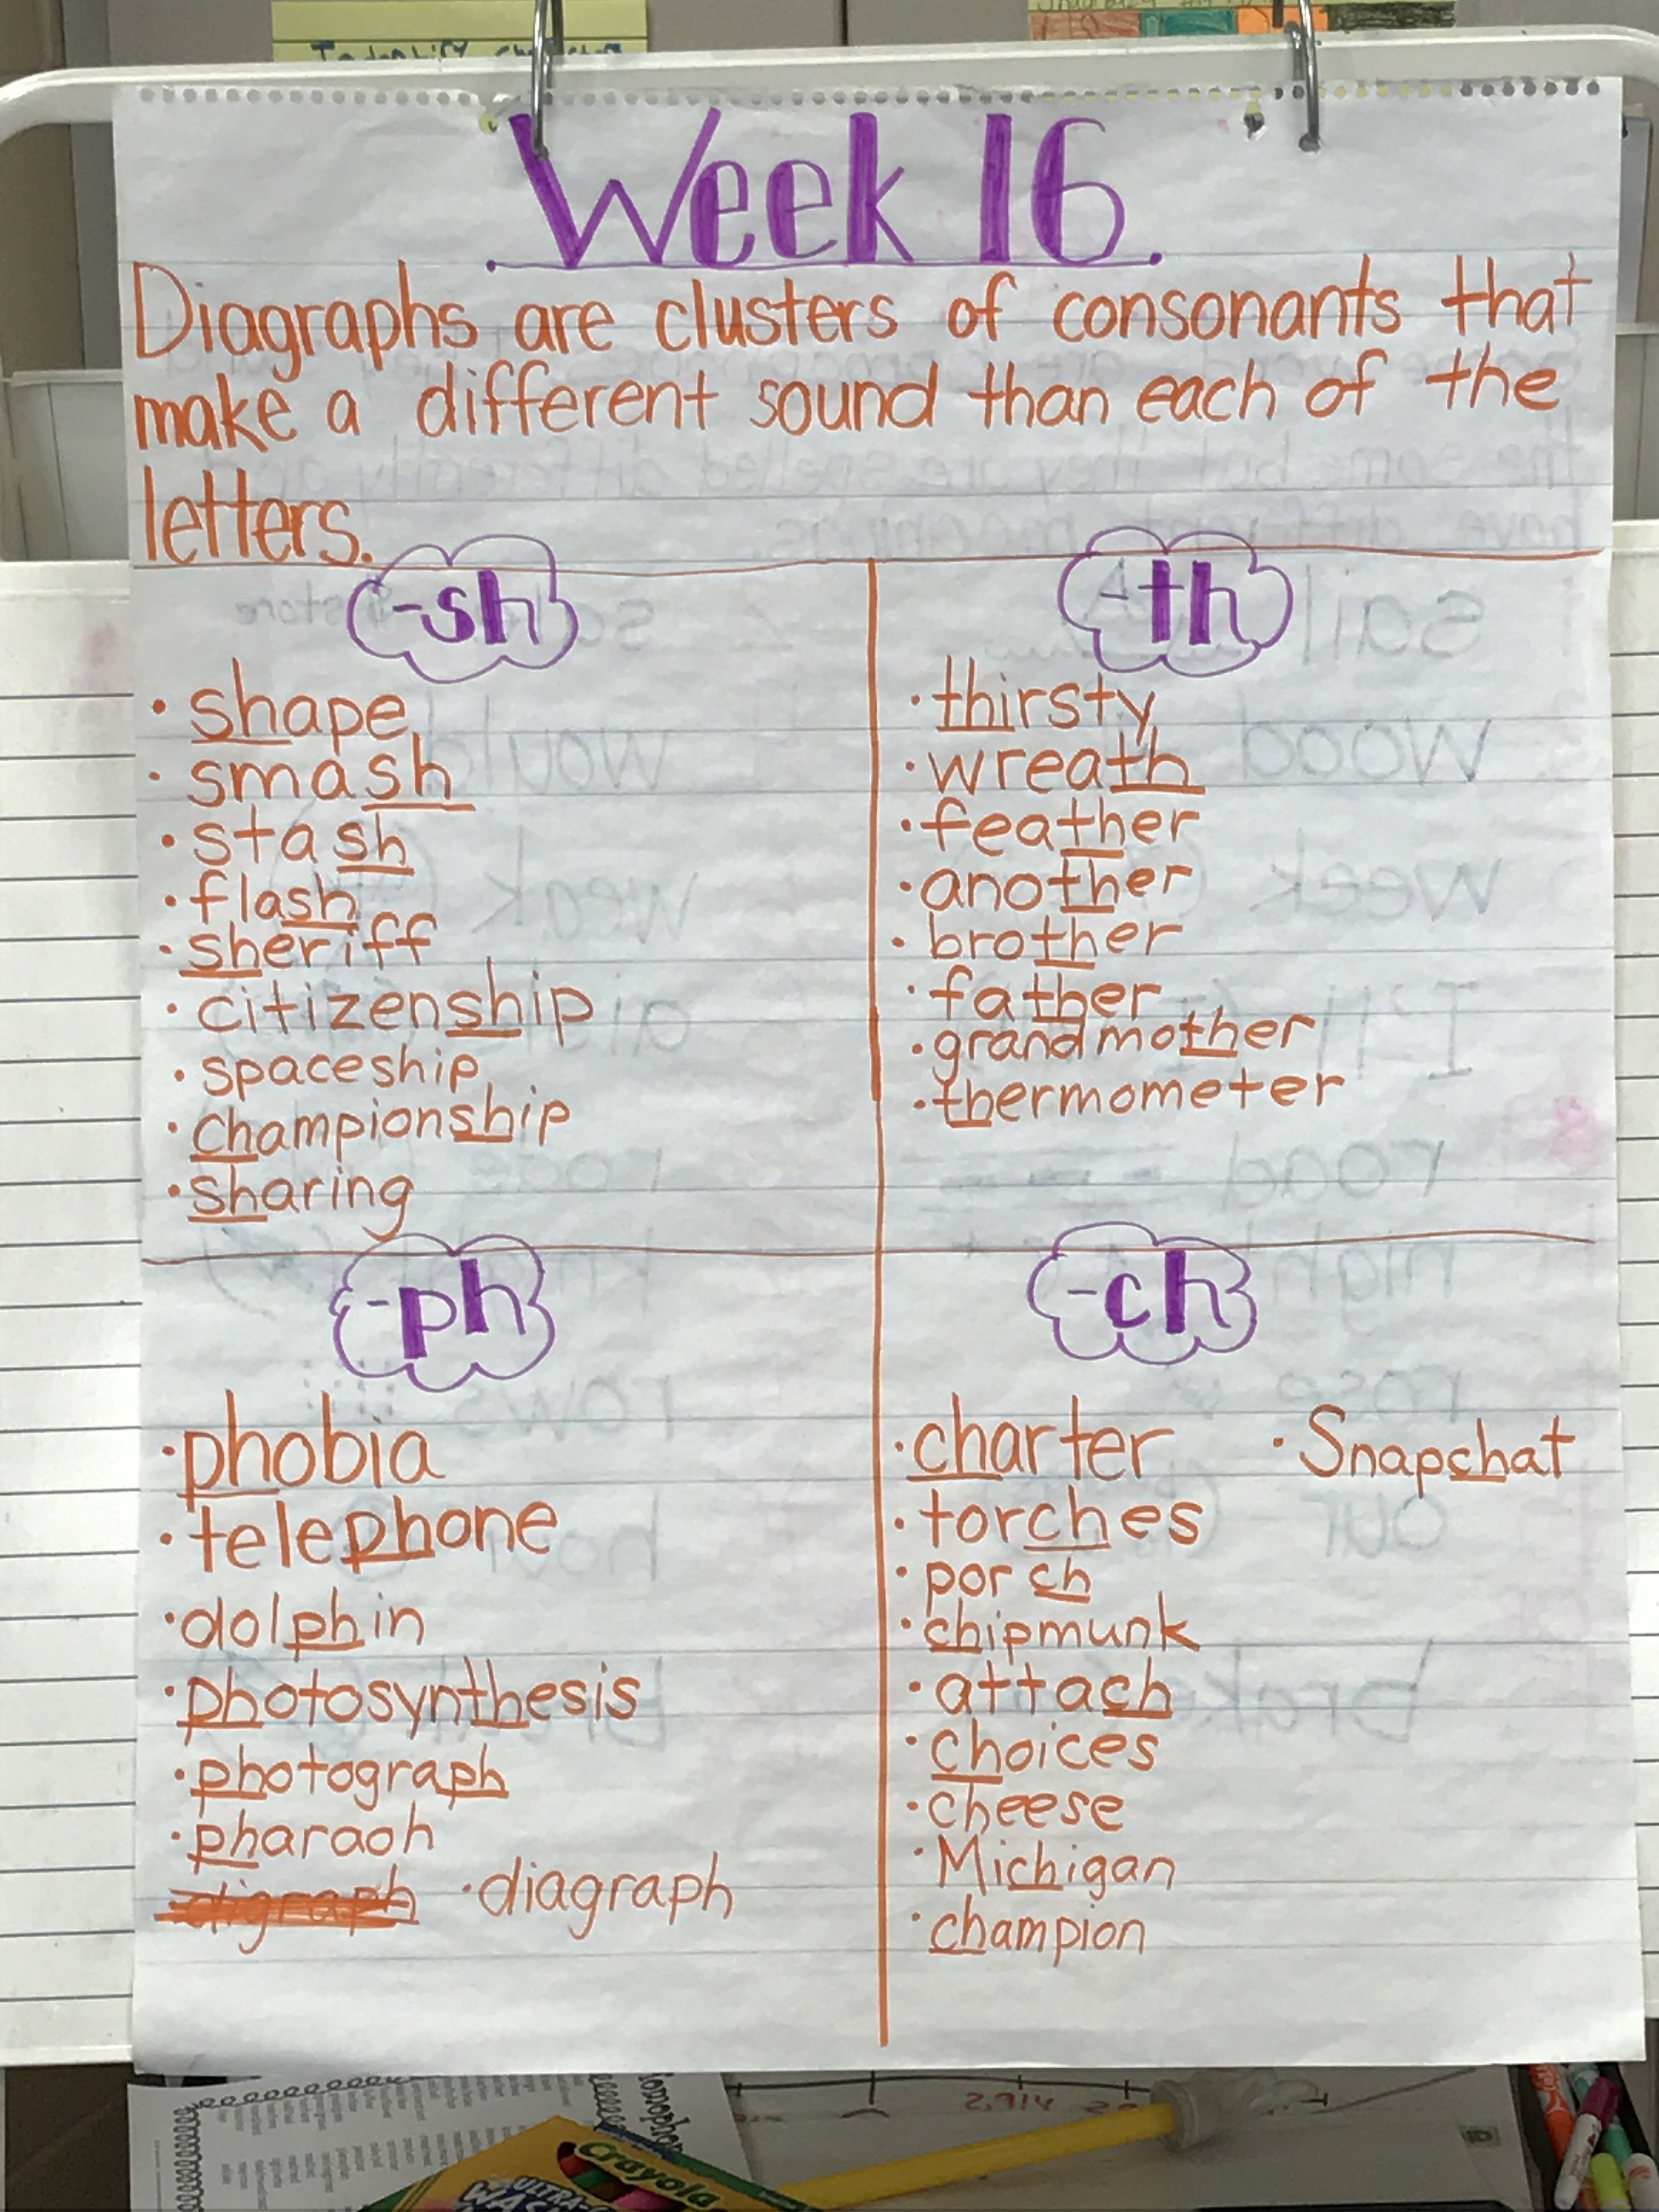 Week 16
Diagraphs are clusters of consonants that
make a different sound than each of the
letters.
-sh
• shape
• smash
• stash
• flash
• sheriff
• citizenship
• spaceship
• championship
• sharing
-th
• thirsty
• wreath
• feather
• another
• brother
• father
• grandmother
• thermometer
-ph
• phobia
• telephone
• dolphin
• photosynthesis
• photograph
• pharaoh
digraph • diagraph
-ch
• charter • Snapchat
• torches
• porch
• chipmunk
• attach
• choices
• cheese
• Michigan
• champion
Crayola